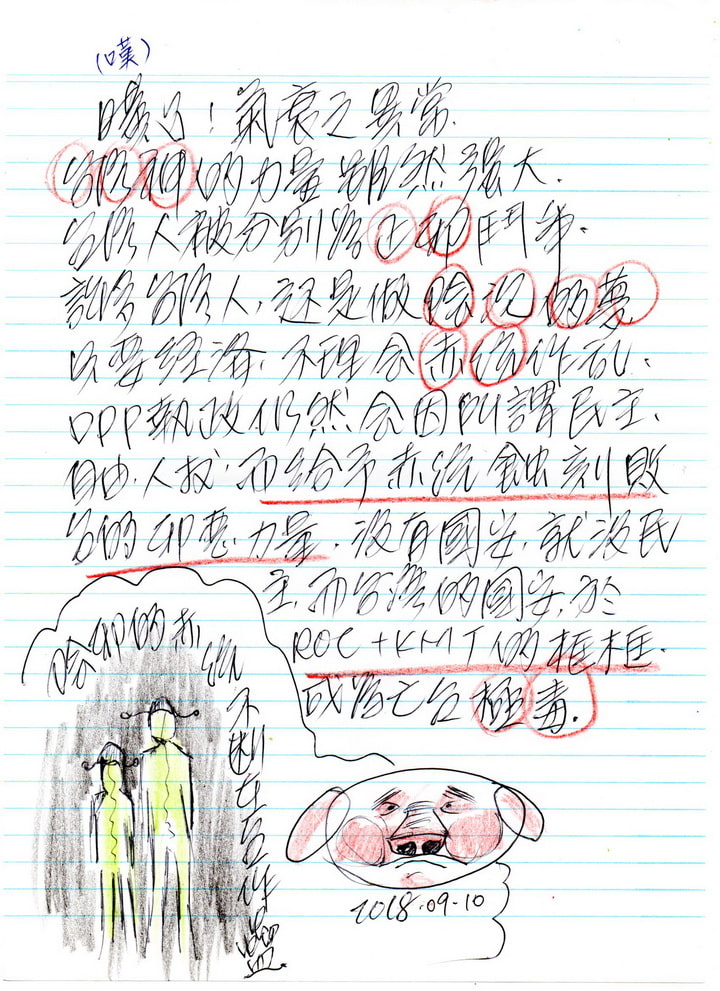 (嘆)
了！氣衰之異常.
的力量顯然強大.
台湾人被分別為正邪鬥爭.
許多台湾人,還是做陰沉的夢
只要經濟,不理會赤統作乱.
DPP執政仍然会因所謂民主、
自由.人权.而給予赤統蝕刻敗
台的邪惡力量.沒有國安.就沒民
主.而台湾的國安.於
ROC+KMT的框框.
成為亡台極毒.
陰邪的赤統不斷在台作
2018.09-10